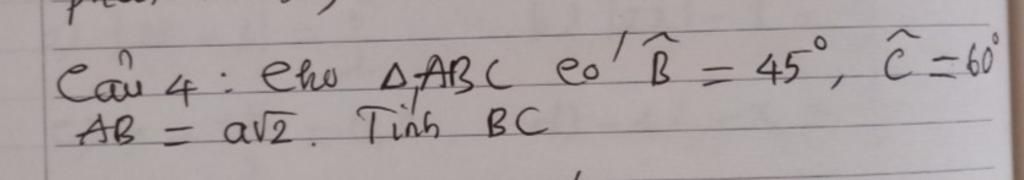 Câu 4 : Cho ΔABC có B̂ = 45°, Ĉ = 60°
AB = a√2. Tính BC